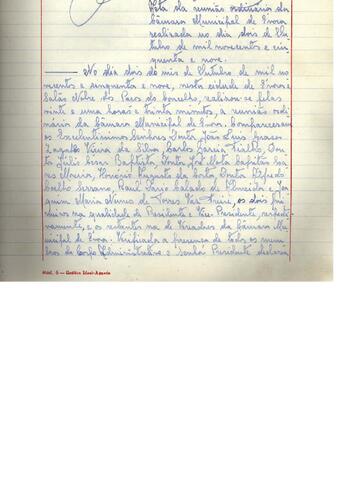 Acta da reunião ordinária da
Câmara Municipal de Évora
realizada no dia dois de Ou-
tubro de mil novecentos e cin-
quenta e nove.
No dia dois do mês de Outubro de mil no-
vecentos e cinquenta e nove, nesta cidade de Évora e
Salão Nobre dos Paços do Concelho, realizou-se pelas
vinte e uma horas e trinta minutos, a reunião ordi-
nária da Câmara Municipal de Évora. Compareceram
os Excelentíssimos Senhores Doutor João Luís
Vieira da Silva, Carlos Garcia Fialho, Dou-
tor Júlio César Baptista, Doutor José Mota Capitão
Moura, Henrique Augusto da Costa, Doutor Alfredo
Coelho Serrano, Raúl Mário Salado de Almeida e Joa-
quim Maria Nunes de Torres Vaz Freire, os dois pri-
meiros na qualidade de Presidente e Vice-Presidente, respecti-
vamente, e os restantes na de Vereadores da Câmara Mu-
nicipal de Évora. Verificada a presença de todos os mem-
bros do Corpo Administrativo o Senhor Presidente declarou
Mod. 5 — Gráfica Ideal-Agueda